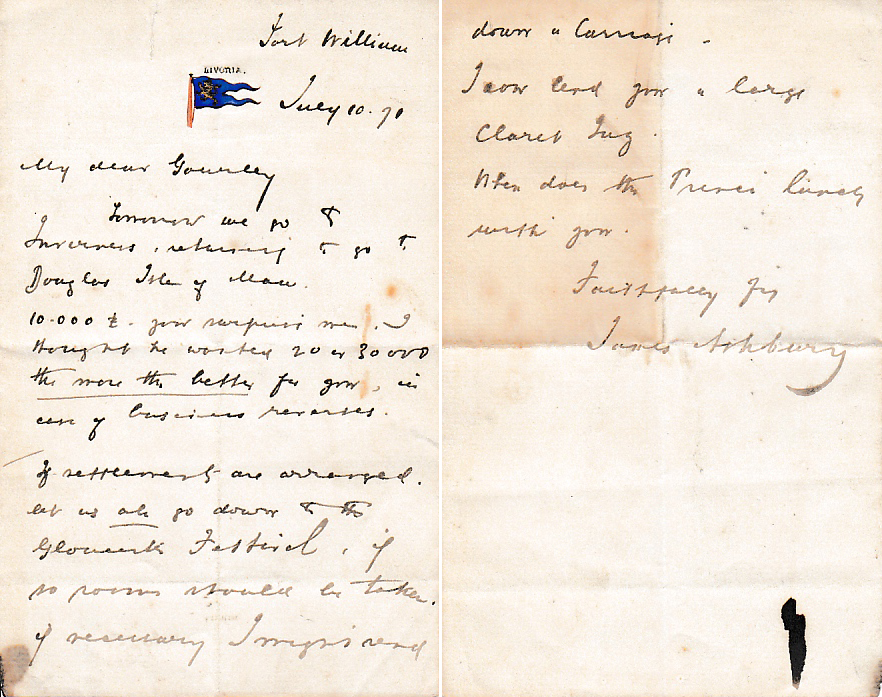 Fort William
LIVONIA.
July 10. 71
My dear Gourley
Tomorrow we go to
Inverness, returning to go to
Douglas Isle of Man.
10.000 £. your surprise me. I
thought he wanted 20 or 30000
the more the better for you, in
case of business reverses.
If settlements are arranged.
let us all go down to the
Gloucester Festival, if
so rooms should be taken.
if necessary I might send
down a Carriage.
I can lend you a large
Claret Jug.
When does the Prince lunch
with you.
Faithfully yrs
James Ashbury